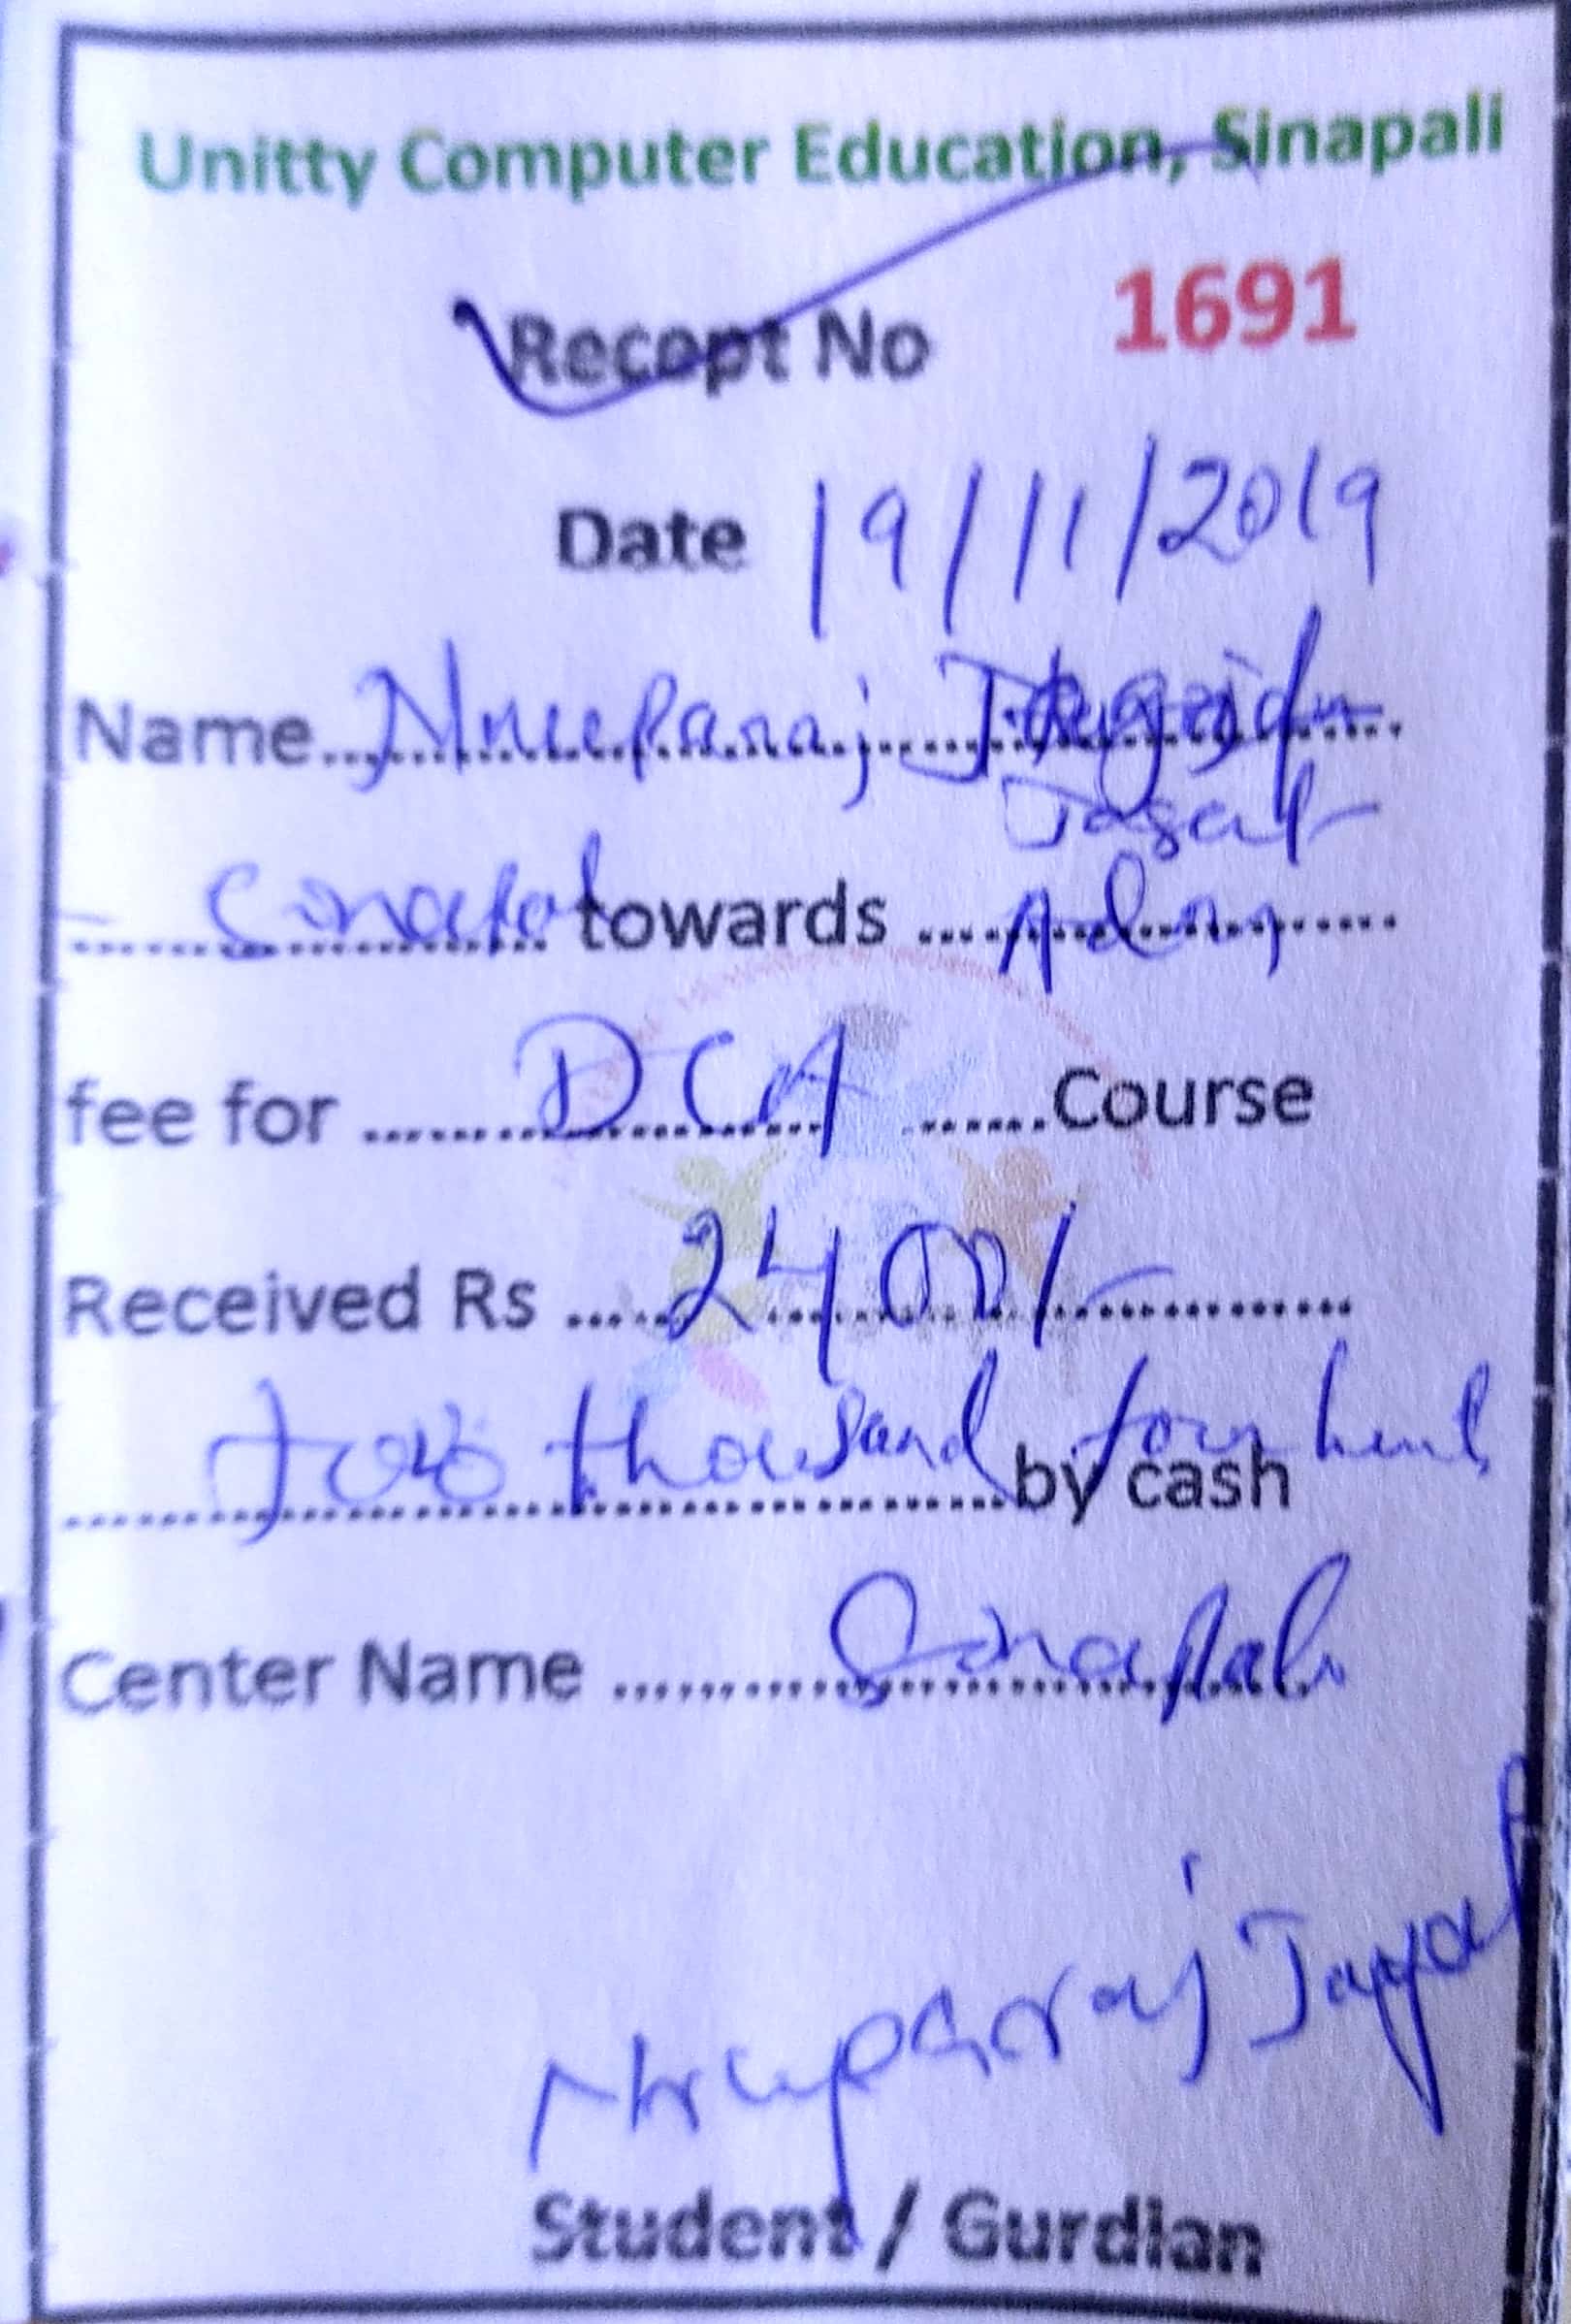 Unitty Computer Education, Sinapali
Recept No 1691
Date 19/11/2019
Name Nrueparaj
Jagat
towards Adm
fee for DCA Course
Received Rs 2400/-
two thousand four hund
by cash
Center Name Sinapali
Nruparaj Jagat
Student / Gurdian